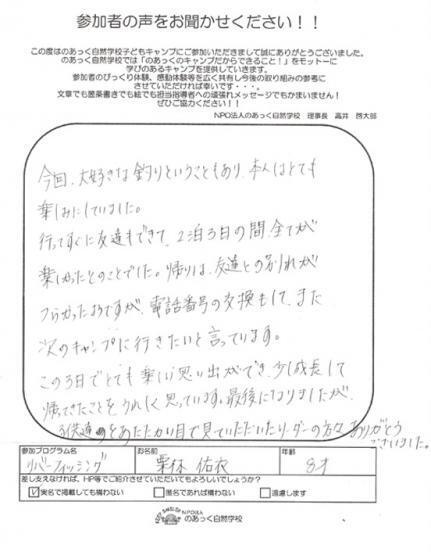 参加者の声をお聞かせください！！
この度はのあっく自然学校子どもキャンプにご参加いただきまして誠にありがとうございました。
のあっく自然学校では「のあっくのキャンプだからできること！」をモットーに
学びのあるキャンプを提供していきます。
参加者のびっくり体験、感動体験等を広く共有し今後の取り組みの参考に
させていただければ幸いです・・・。
文章でも箇条書きでも絵でも担当指導者への頑張れメッセージでもかまいません！
ぜひご協力ください！！
NPO法人のあっく自然学校　理事長　高井　啓太郎
今回、大好きな釣りということもあり、本人はとても
楽しみにしていました。
行ってすぐに友達もできて、2泊3日の間、全てが
楽しかったとのことでした。帰りは、友達との別れが
つらかったようですが、電話番号の交換もして、また
次のキャンプに行きたいと言っています。
この3日でとても楽しい思い出ができ、少し成長して
帰ってきたことをうれしく思っています。最後になりましたが、
子供達をあたたかい目で見ていただいたリーダーの方々、ありがとう
ございました。
参加プログラム名
お名前
年齢
リバーフィッシング
栗林 佑衣
8才
差し支えなければ、HP等でご紹介させていただいてもよろしいでしょうか？
☑実名で掲載しても構わない
□匿名であれば構わない
□遠慮します
NPO法人
のあっく自然学校